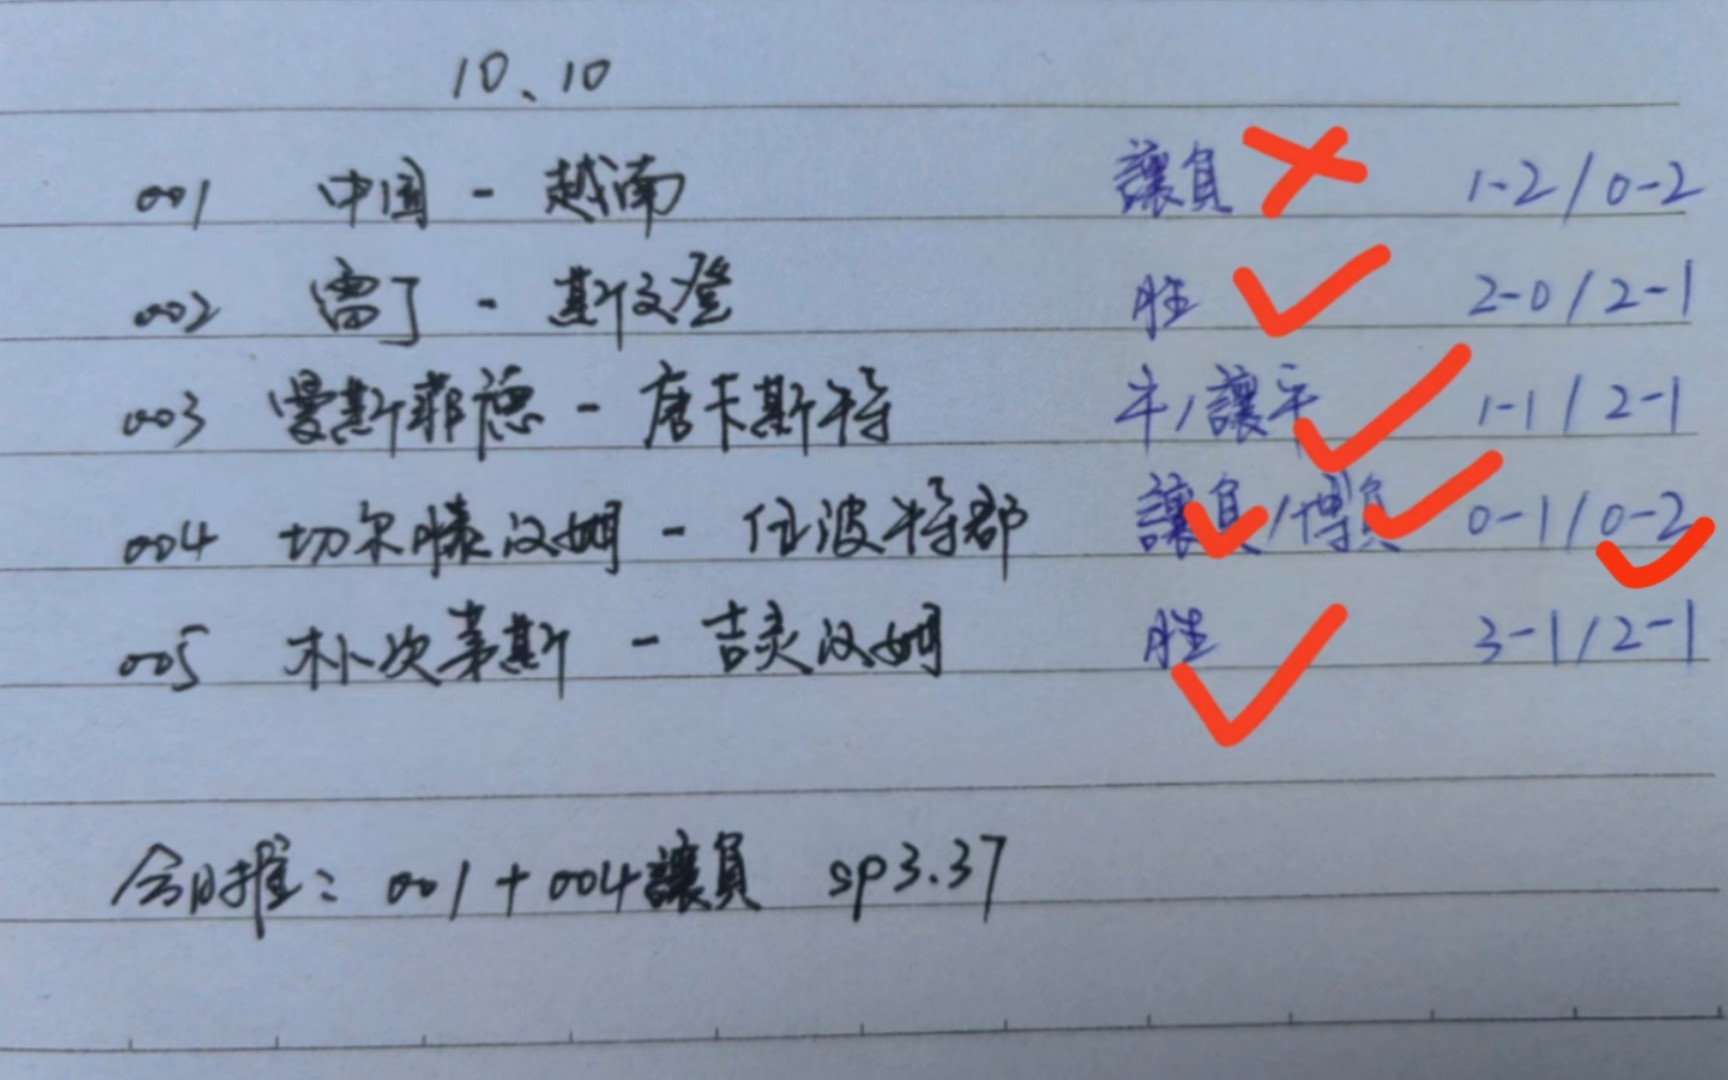 10、10
001 中国 - 越南 讓負 1-2 / 0-2
002 雷丁 - 斯文登 胜 2-0 / 2-1
003 曼斯菲德 - 唐卡斯特 平/讓平 1-1 / 2-1
004 切尔滕汉姆 - 什波特郡 讓負/博負 0-1 / 0-2
005 朴次茅斯 - 吉灵汉姆 胜 3-1 / 2-1
今日推: 001+004讓負 sp3.37